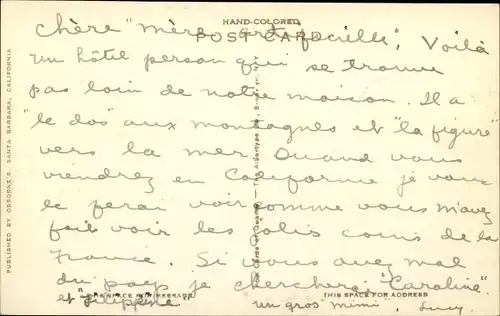 HAND-COLORED
POST CARD
chère "mère artificielle", Voilà
un hôtel person qui se trouve
pas loin de notre maison. Il a
"le dos" aux montagnes et "la figure"
vers la mer. Quand vous
viendrez en Californie je vous
le ferai voir comme vous m'avez
fait voir les jolis coins de la
France. Si vous avez mal
du pays je chercherai "Caroline"
et "Filippine"
un gros mimi, Lucy
THIS SPACE FOR MESSAGE
THIS SPACE FOR ADDRESS
PUBLISHED BY OSBORNE'S, SANTA BARBARA, CALIFORNIA
The Albertype Co., Brooklyn, N.Y.